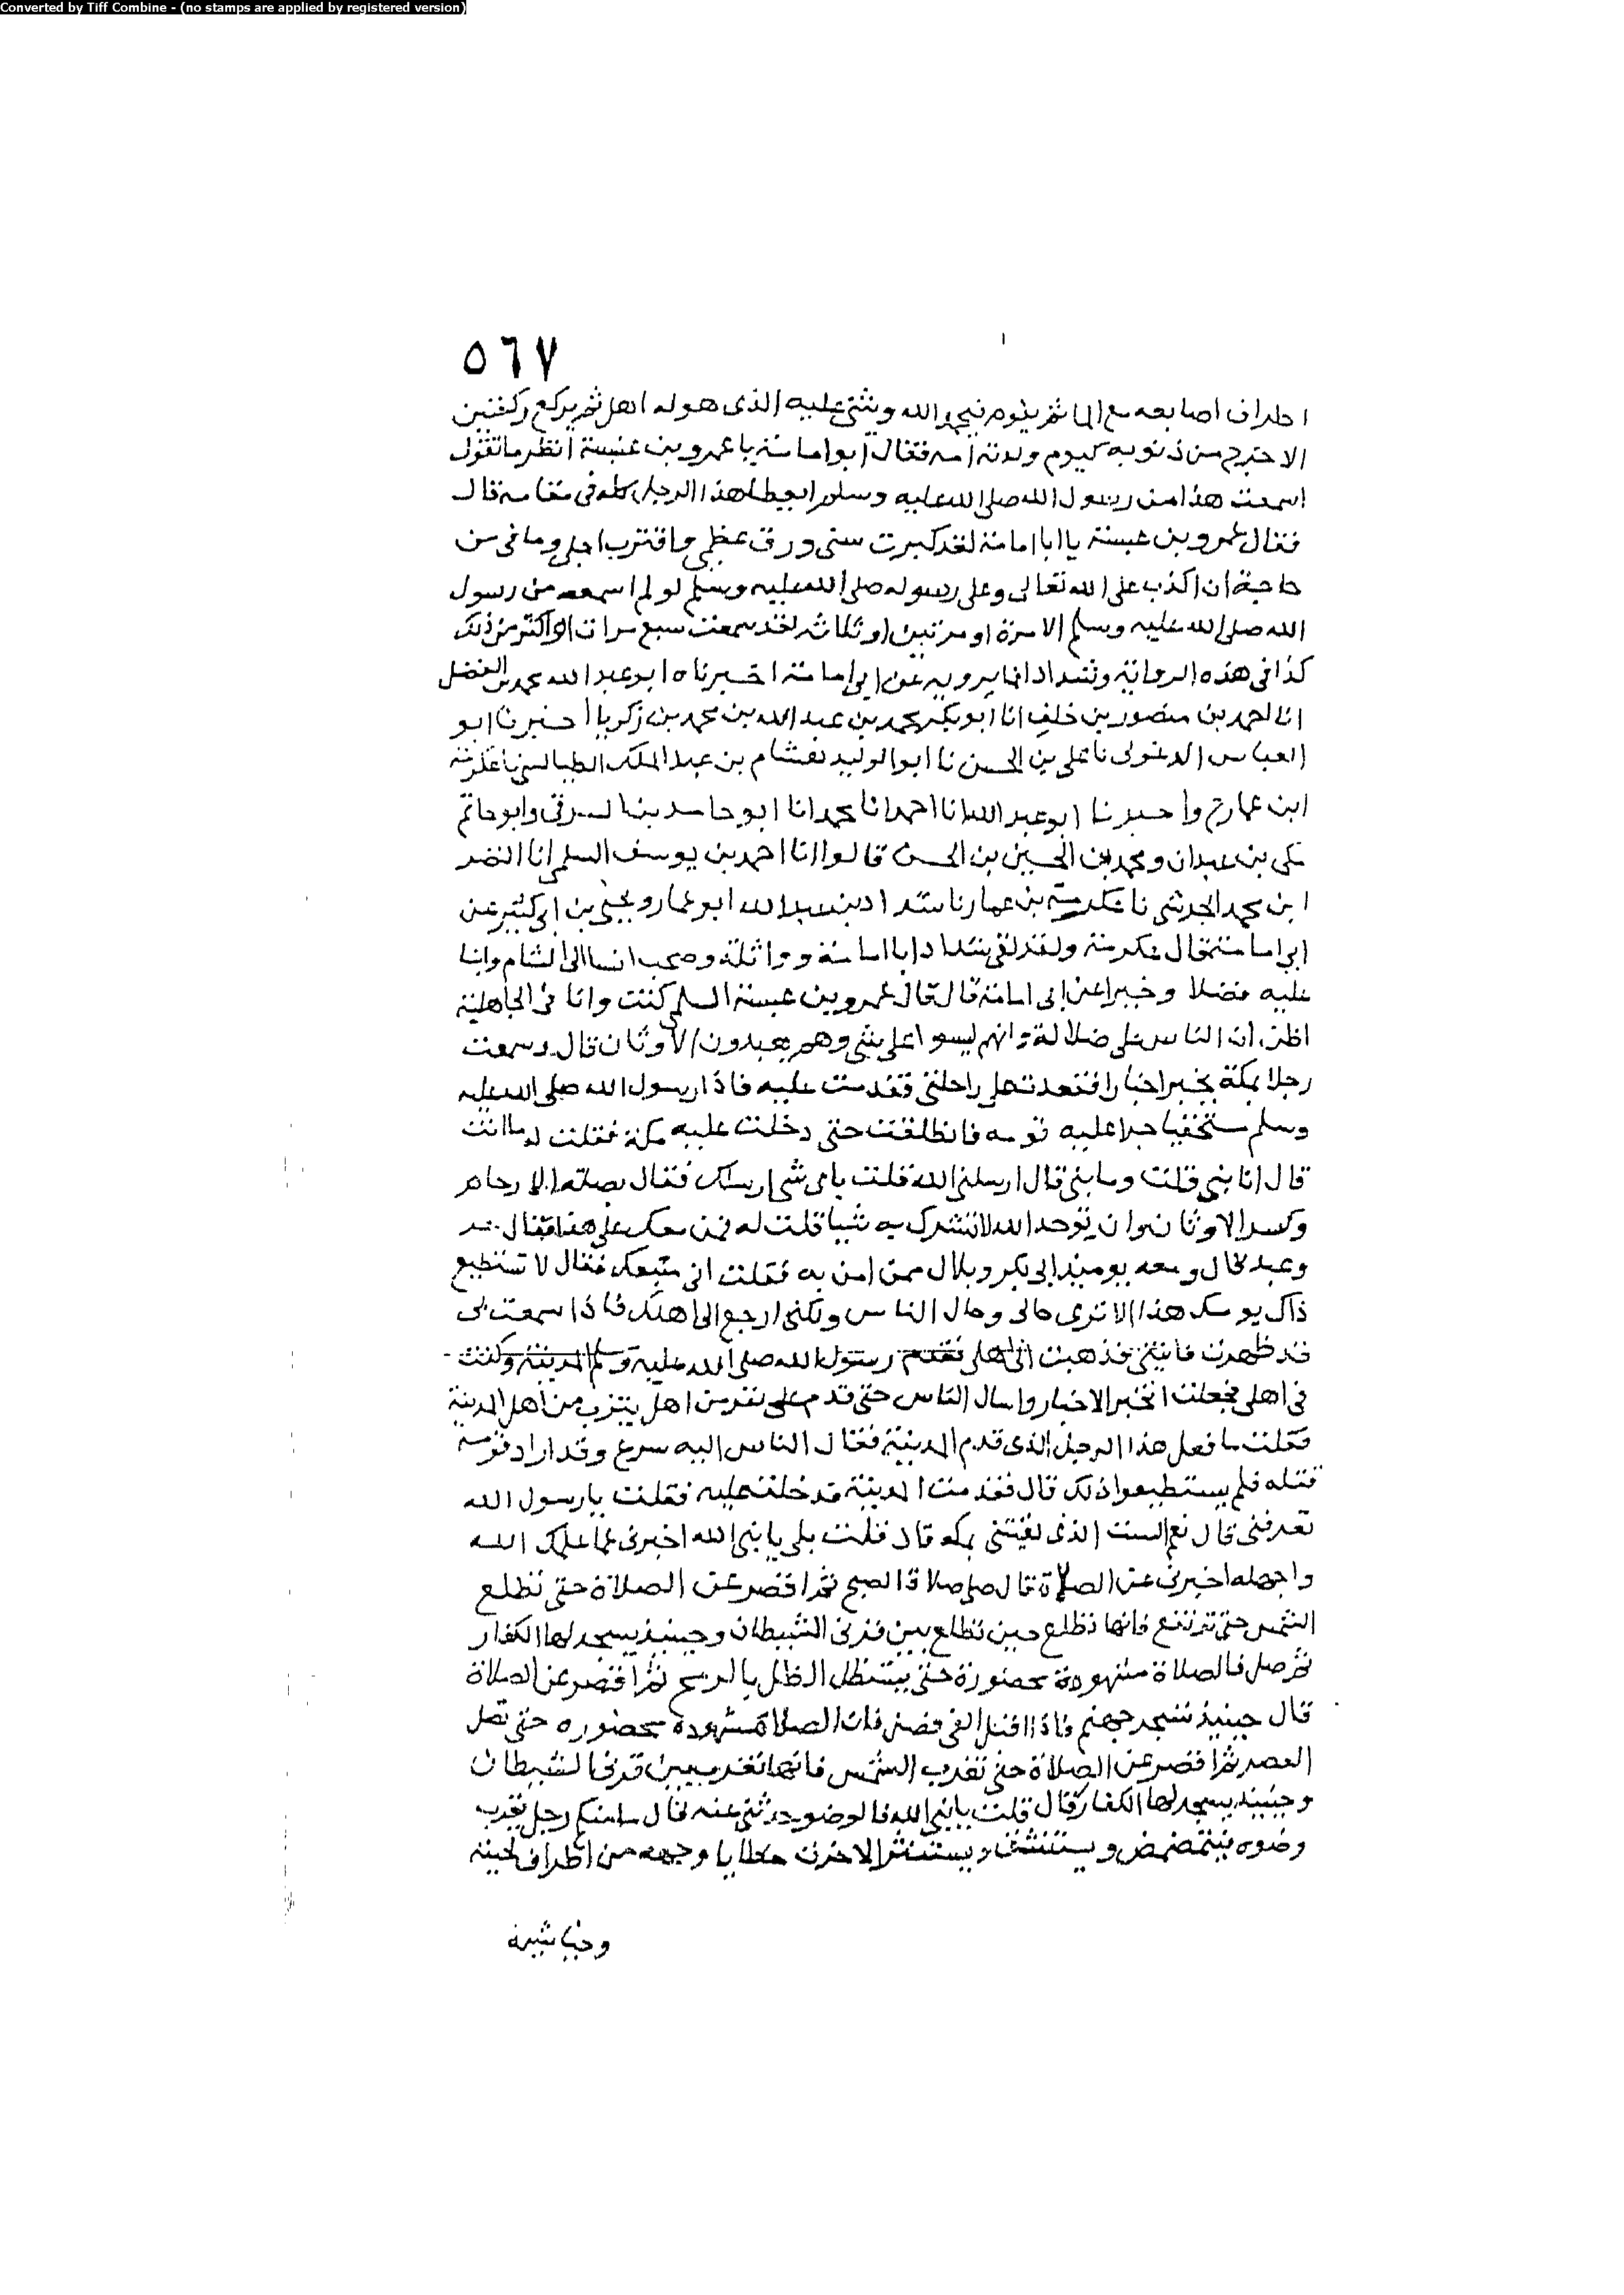 Converted by Tiff Combine - (no stamps are applied by registered version)
٥٦٧
اطراف اصابعه مع الما ثم يقوم فيحمد الله ويثني عليه الذى هو له اهل ثم يركع ركعتين
الا خرج من ذنوبه كيوم ولدته امه فقال ابو امامة يا عمرو بن عنبسة انظر ما تقول
اسمعت هذا من رسول الله صلى الله عليه وسلم ايعطا هذا الرجل كله فى مقامه قال
فقال عمرو بن عبسة يا ابا امامة لقد كبرت سنى ورق عظمى واقترب اجلى وما فى من
حاجة ان اكذب على الله تعالى وعلى رسوله صلى الله عليه وسلم لو لم اسمعه من رسول
الله صلى الله عليه وسلم الا مرة او مرتين او ثلاثه لقد سمعت سبع مرات او اكثر من ذلك
كذا فى هذه الرواية وشداد انما يرويه عن ابى امامة اخبرناه ابو عبد الله محمد بن الفضل
انا احمد بن منصور بن خلف انا ابو بكر محمد بن عبد الله بن محمد بن زكريا اخبرنا ابو
العباس الدغولى نا على بن الحسن نا ابو الوليد هشام بن عبد الملك الطيالسى نا عكرمة
ابن عمار ح واخبرنا ابو عبد الله انا احمد انا محمد انا ابو حامد بن الشرقى وابو حاتم
مكى بن عبدان ومحمد بن الحسين بن الحسن قالوا انا احمد بن يوسف السلمى انا النضر
ابن محمد الجرشى نا عكرمة بن عمار نا شداد بن عبد الله ابو عمار ويحيى بن ابى كثير عن
ابى امامة قال عكرمة ولقد لقى شداد ابا امامة وواثلة وصحب انسا الى الشام واثنا
عليه فضلا وخيرا عن ابى امامة قال قال عمرو بن عبسة السلمى كنت وانا فى الجاهلية
اظن ان الناس على ضلالة وانهم ليسوا على شى وهم يعبدون الاوثان قال وسمعت
رجلا بمكة يخبر اخبارا فقعدت على راحلتى فقدمت عليه فاذا رسول الله صلى الله عليه
وسلم مستخفيا جرا عليه قومه فانطلقت حتى دخلت عليه مكة فقلت له ما انت
قال انا نبى قلت وما نبى قال ارسلنى الله قلت باى شى ارسلك فقال بصلة الارحام
وكسر الاوثان وان يوحد الله لا تشرك به شيا قلت له فمن معك على هذا فقال حر
وعبد قال ومعه يوميذ ابى بكر وبلال ممن امن به فقلت انى متبعك فقال لا تستطيع
ذاك يومك هذا الا ترى حالى وحال الناس ولكن ارجع الى اهلك فاذا سمعت بى
قد ظهرت فاتنى فذهبت الى اهلى فقدم رسول الله صلى الله عليه وسلم المدينة وكنت
فى اهلى فجعلت اتخبر الاخبار واسال الناس حتى قدم على نفر من اهل يثرب من اهل المدينة
فقلت ما فعل هذا الرجل الذى قدم المدينة فقال الناس اليه سرع وقد اراد قومه
قتله فلم يستطيعوا ذلك قال فقدمت المدينة فدخلت عليه فقلت يا رسول الله
تعرفنى قال نعم الست الذى لقيتنى بمكة قال قلت بلى يا نبى الله اخبرنى عما علمك الله
واجهله اخبرنى عن الصلاة قال صل صلاة الصبح ثم اقصر عن الصلاة حتى تطلع
الشمس حتى ترتفع فانها تطلع حين تطلع بين قرنى الشيطان وحينيذ يسجد لها الكفار
ثم صل فالصلاة مشهودة محضورة حتى يستظل الظل بالرمح ثم اقصر عن الصلاة
قال حينيذ تسجر جهنم فاذا اقبل الفى فصل فان الصلاة مشهودة محضوره حتى تصل
العصر ثم اقصر عن الصلاة حتى تغرب الشمس فانها تغرب بين قرنى الشيطان
وحينيذ يسجد لها الكفار قال قلت يا نبى الله فالوضو حدثنى عنه قال ما منكم رجل يقرب
وضوه فيتمضمض ويستنشق ويستنثر الا خرت خطايا وجهه من اطراف لحيته
وخياشيمه